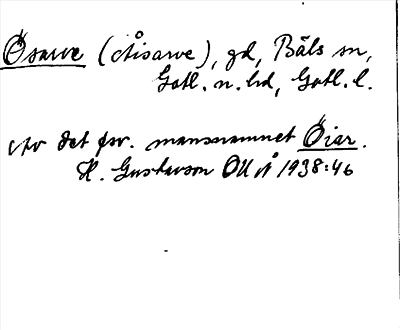 Ösarve (Åisarve), gd, Bäls sn,
Gotl. n. hd, Gotl. l.
Av det fsv. mansnamnet Öiar.
H. Gustavson OUÅ 1938:46